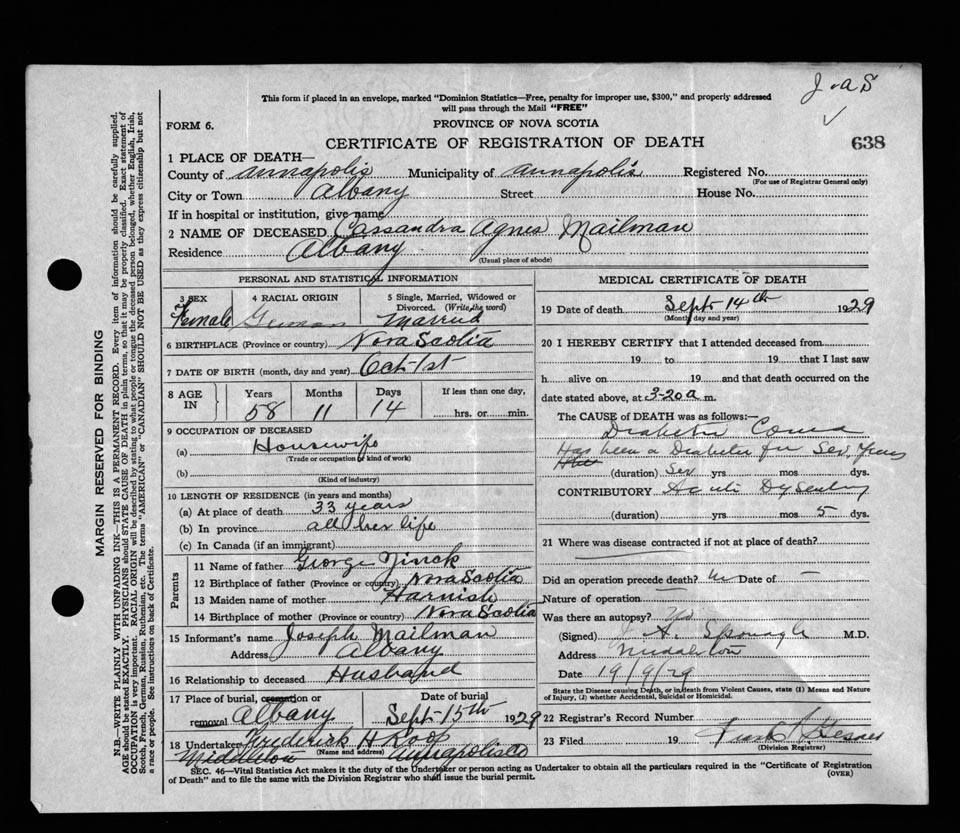 J. A S
This form if placed in an envelope, marked "Dominion Statistics—Free, penalty for improper use, $300," and properly addressed
will pass through the Mail "FREE"
FORM 6.
PROVINCE OF NOVA SCOTIA
CERTIFICATE OF REGISTRATION OF DEATH
638
1 PLACE OF DEATH—
County of Annapolis Municipality of Annapolis Registered No.
(For use of Registrar General only)
City or Town Albany Street House No.
If in hospital or institution, give name
2 NAME OF DECEASED Cassandra Agnes Mailman
Residence Albany
(Usual place of abode)
PERSONAL AND STATISTICAL INFORMATION
3 SEX
Female
4 RACIAL ORIGIN
German
5 Single, Married, Widowed or
Divorced. (Write the word)
Married
6 BIRTHPLACE (Province or country) Nova Scotia
7 DATE OF BIRTH (month, day and year) Oct 1st
8 AGE IN
Years 58
Months 11
Days 14
If less than one day,
hrs. or min.
9 OCCUPATION OF DECEASED
(a) Housewife
(Trade or occupation or kind of work)
(b)
(Kind of industry)
10 LENGTH OF RESIDENCE (in years and months)
(a) At place of death 33 years
(b) In province all her life
(c) In Canada (if an immigrant)
Parents
11 Name of father George
12 Birthplace of father (Province or country) Nova Scotia
13 Maiden name of mother Harnish
14 Birthplace of mother (Province or country) Nova Scotia
15 Informant's name Joseph Mailman
Address Albany
16 Relationship to deceased Husband
17 Place of burial, cremation or
removal Albany
Date of burial
Sept 15th 1929
18 Undertaker Frederick H Roop
(Name and address)
Middleton Annapolis Co
MEDICAL CERTIFICATE OF DEATH
19 Date of death Sept 14th 1929
(Month, day and year)
20 I HEREBY CERTIFY that I attended deceased from
19 to 19 that I last saw
h alive on 19 and that death occurred on the
date stated above, at 3-20 a m.
The CAUSE of DEATH was as follows:—
Diabetic Coma
Has been a Diabetic for Sev. Years
(duration) Sev yrs mos dys.
CONTRIBUTORY Acute Dysentery
(duration) yrs mos 5 dys.
21 Where was disease contracted if not at place of death?
Did an operation precede death? No Date of —
Nature of operation
Was there an autopsy? No
(Signed) J A. Sponagle M.D.
Address Middleton
Date 19/9/29
State the Disease causing Death, or, in death from Violent Causes, state (1) Means and Nature
of Injury, (2) whether Accidental, Suicidal or Homicidal.
22 Registrar's Record Number
23 Filed 19
(Division Registrar)
SEC. 46—Vital Statistics Act makes it the duty of the Undertaker or person acting as Undertaker to obtain all the particulars required in the "Certificate of Registration
of Death" and to file the same with the Division Registrar who shall issue the burial permit.
(OVER)
MARGIN RESERVED FOR BINDING
N.B.—WRITE PLAINLY WITH UNFADING INK—THIS IS A PERMANENT RECORD. Every item of information should be carefully supplied.
AGE should be stated EXACTLY. PHYSICIANS should STATE CAUSE OF DEATH in plain terms, so that it may be properly classified. Exact statement of
OCCUPATION is very important. RACIAL ORIGIN will be described by stating to what people or tongue the deceased person belonged, whether English, Irish,
Scotch, French, German, Russian, Ruthenian, etc. The terms "AMERICAN" or "CANADIAN" SHOULD NOT BE USED as they express citizenship but not
a race or people. See instructions on back of Certificate.